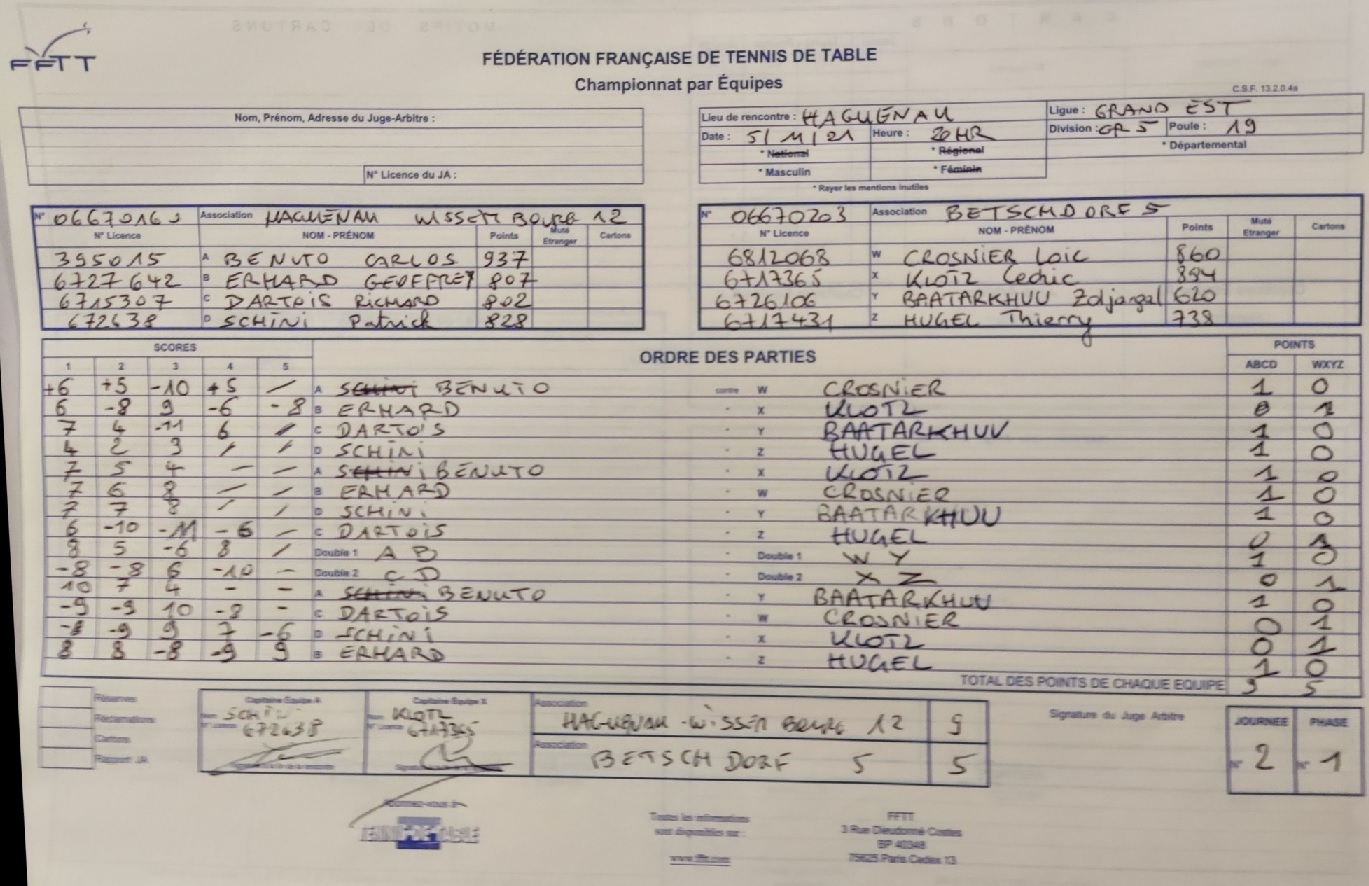 FFTT
FÉDÉRATION FRANÇAISE DE TENNIS DE TABLE
Championnat par Équipes
C.S.F. 13.2.0.4a
Nom, Prénom, Adresse du Juge-Arbitre :
N° Licence du JA :
Lieu de rencontre : HAGUENAU Ligue : GRAND EST
Date : 5/11/21 Heure : 20HR Division : GR 5 Poule : 19
* National * Régional * Départemental
* Masculin * Féminin
* Rayer les mentions inutiles
N° Association HAGUENAU WISSEM BOURG 12
N° Licence NOM - PRÉNOM Points Muté Etranger Cartons
395015 A BENUTO CARLOS 937
6727642 B ERHARD GEOFFREY 807
6715307 C DARTOIS RICHARD 802
672638 D SCHINI Patrick 828
N° 06670203 Association BETSCHDORF 5
N° Licence NOM - PRÉNOM Points Muté Etranger Cartons
6812068 W CROSNIER Loic 860
6717365 X KLOTZ Cedric
6726106 Y BAATARKHUU Zoljargal 620
6717431 Z HUGEL Thierry 738
SCORES ORDRE DES PARTIES POINTS
1 2 3 4 5 ABCD WXYZ
+6 +5 -10 +5 / A SCHINI BENUTO contre W CROSNIER 1 0
6 -8 9 -6 -8 B ERHARD - X KLOTZ 0 1
7 4 -11 6 / C DARTOIS - Y BAATARKHUU 1 0
4 2 3 / / D SCHINI - Z HUGEL 1 0
7 5 4 — — A SCHINI BENUTO - X KLOTZ 1 0
7 6 8 — — B ERHARD - W CROSNIER 1 0
7 7 8 — — D SCHINI - Y BAATARKHUU 1 0
6 -10 -11 -6 / C DARTOIS - Z HUGEL 0 1
8 5 -6 8 / Double 1 A B - Double 1 W Y 1 0
-8 -8 6 -10 - Double 2 C D - Double 2 X Z 0 1
10 7 4 - - A SCHINI BENUTO - Y BAATARKHUU 1 0
-9 -9 10 -8 - C DARTOIS - W CROSNIER 0 1
-8 -9 9 7 -6 D SCHINI - X KLOTZ 0 1
8 8 -8 -9 9 B ERHARD - Z HUGEL 1 0
TOTAL DES POINTS DE CHAQUE EQUIPE 9 5
Réserves
Réclamations
Cartons
Rapport JA
Capitaine Equipe A
Nom SCHINI
N° Licence 672638
Capitaine Equipe X
Nom KLOTZ
N° Licence 6717365
Association
HAGUENAU - WISSEM BOURG 12 9
Association
BETSCHDORF 5 5
Signature du Juge Arbitre
JOURNEE PHASE
N° 2 N° 1
TENNIS DE TABLE
Toutes les informations
sont disponibles sur :
www.fftt.com
FFTT
3 Rue Dieudonné Costes
BP 40348
75625 Paris Cedex 13